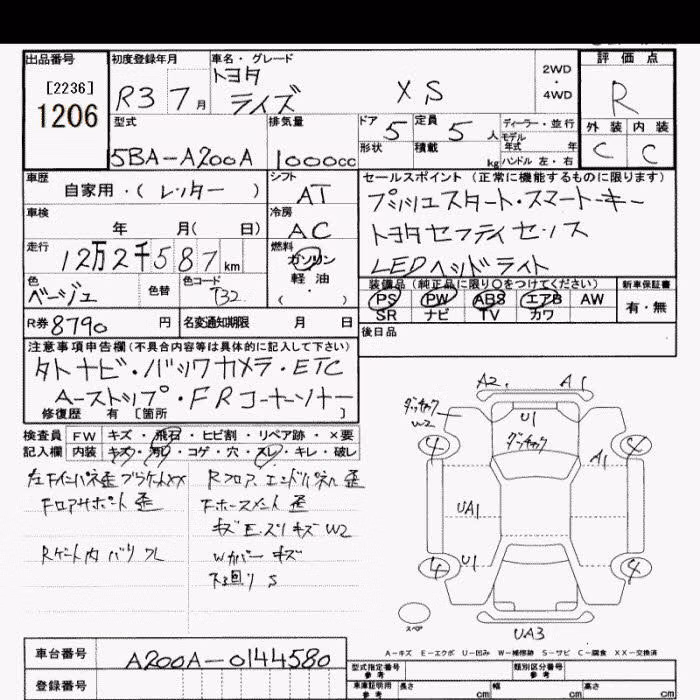 出品番号 初度登録年月 車名・グレード 評価点
[2236] トヨタ 2WD
1206 R3 7月 ライズ XS ・4WD R
型式 排気量 ドア 5 定員 5人 ディーラー・並行 外装 内装
モデル年式 年
5BA-A200A 1000cc 形状 積載 kg ハンドル 左・右 C C
車歴 シフト セールスポイント (正常に機能するものに限ります)
自家用・(レンター) AT プッシュスタート・スマートキー
車検 冷房
年 月( 日) AC トヨタセフティセンス
走行 燃料
12万2千587km ガソリン LEDヘッドライト
軽油
色 色替 色コード 装備品(純正品に限り○をつけてください) 新車保証書
ベージュ T32 ( ・ ) PS PW ABS エアB AW 有・無
SR ナビ TV カワ
R券 8790円 名変通知期限 月 日 後日品
注意事項申告欄(不具合内容等は具体的に記入して下さい)
外ナビ・バックカメラ・ETC
A-ストップ・FRコーナーソナー
修復歴 有 [箇所 ]
検査員 FW キズ・飛石・ヒビ割・リペア跡・×要
記入欄 内装 キズ・汚レ・コゲ・穴・スレ・キレ・破レ
左Fインパネ歪 ブラケットXX Rフロア エンドパネル 歪
Fロアサポート 歪 Fホースメント 歪
キズ E・ズリキズ W2
Rゲート内 バリ フレ Wカバー キズ
下廻り S
A2 A1
ダッチャク W2 U1
4 ダッチャク 4
A1
UA1
4 U1 4
スペア
UA3
A-キズ E-エクボ U-凹み W-補修跡 S-サビ C-腐食 XX-交換済
車台番号 A200A-0144580 型式指定番号 参考 類別区分番号 参考
登録番号 車庫証明用 参考 長さ cm 幅 cm 高さ cm